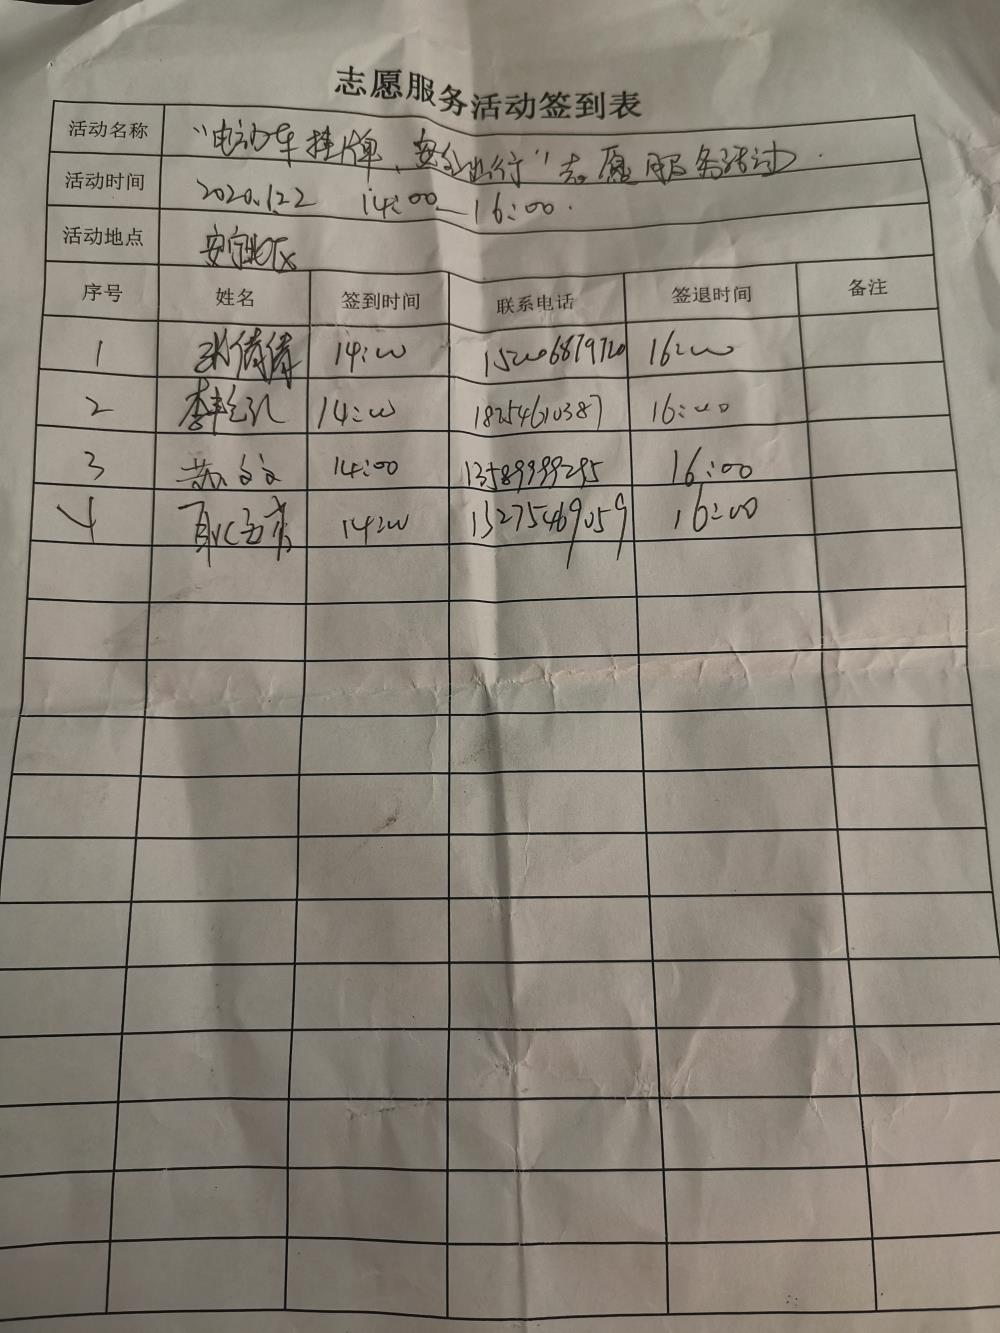 志愿服务活动签到表
活动名称 "电动车挂牌、安全出行"志愿服务活动.
活动时间 2020.12.2 14:00—16:00.
活动地点 安宁北区
序号 姓名 签到时间 联系电话 签退时间 备注
1 张倩倩 14:00 152006879720 16:00
2 李 14:00 18254610387 16:00
3 苏文文 14:00 13589999295 16:00
4 14:00 13275469059 16:00